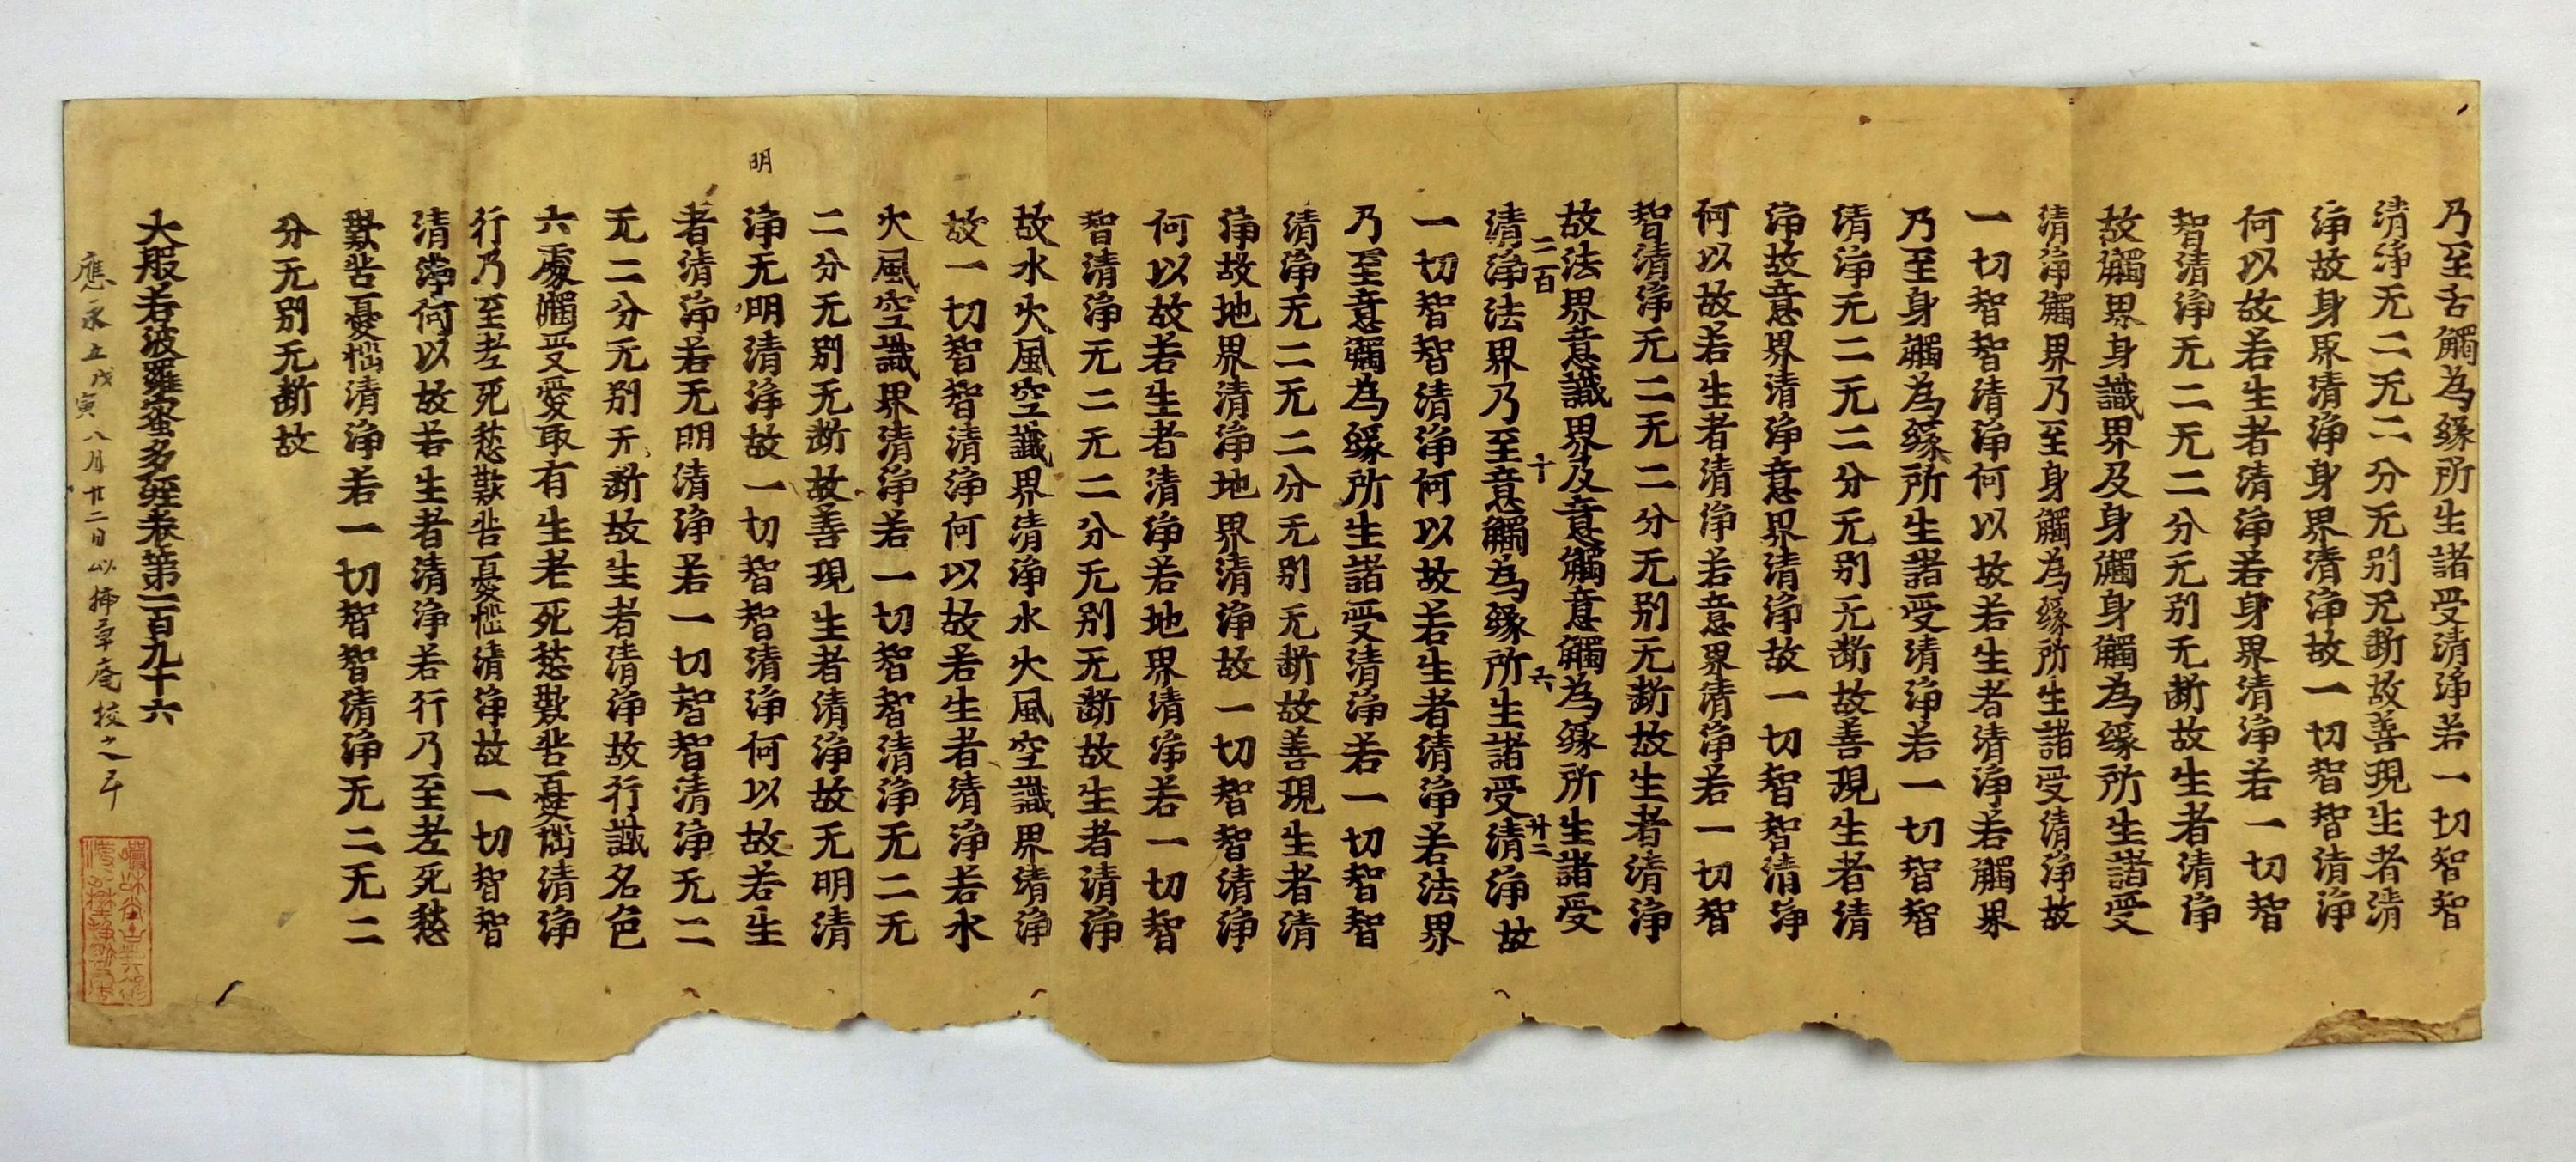 乃至舌觸為緣所生諸受清淨若一切智智
清淨无二无二分无別无斷故善現生者清
淨故身界清淨身界清淨故一切智智清淨
何以故若生者清淨若身界清淨若一切智
智清淨无二无二分无別无斷故生者清淨
故觸界身識界及身觸身觸為緣所生諸受
清淨觸界乃至身觸為緣所生諸受清淨故
一切智智清淨何以故若生者清淨若觸界
乃至身觸為緣所生諸受清淨若一切智智
清淨无二无二分无別无斷故善現生者清
淨故意界清淨意界清淨故一切智智清淨
何以故若生者清淨若意界清淨若一切智
智清淨无二无二分无別无斷故生者清淨
故法界意識界及意觸意觸為緣所生諸受
二百 十 六 廾二
清淨法界乃至意觸為緣所生諸受清淨故
一切智智清淨何以故若生者清淨若法界
乃至意觸為緣所生諸受清淨若一切智智
清淨无二无二分无別无斷故善現生者清
淨故地界清淨地界清淨故一切智智清淨
何以故若生者清淨若地界清淨若一切智
智清淨无二无二分无別无斷故生者清淨
故水火風空識界清淨水火風空識界清淨
故一切智智清淨何以故若生者清淨若水
火風空識界清淨若一切智智清淨无二无
二分无別无斷故善現生者清淨故无明清
明
淨无明清淨故一切智智清淨何以故若生
者清淨若无明清淨若一切智智清淨无二
无二分无別无斷故生者清淨故行識名色
六處觸受愛取有生老死愁歎苦憂惱清淨
行乃至老死愁歎苦憂惱清淨故一切智智
清淨何以故若生者清淨若行乃至老死愁
歎苦憂惱清淨若一切智智清淨无二无二
分无別无斷故
大般若波羅蜜多經卷第二百九十六
應永五戊寅八月廿二日以掃草庵校之